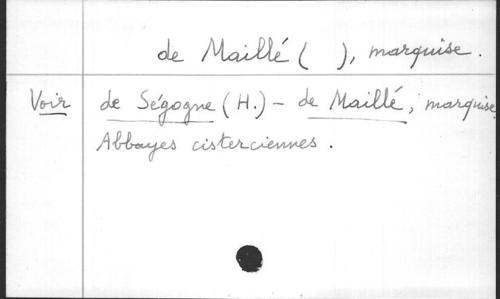 de Maillé ( ), marquise.
Voir de Ségogne (H.) - de Maillé, marquise.
Abbayes cisterciennes.